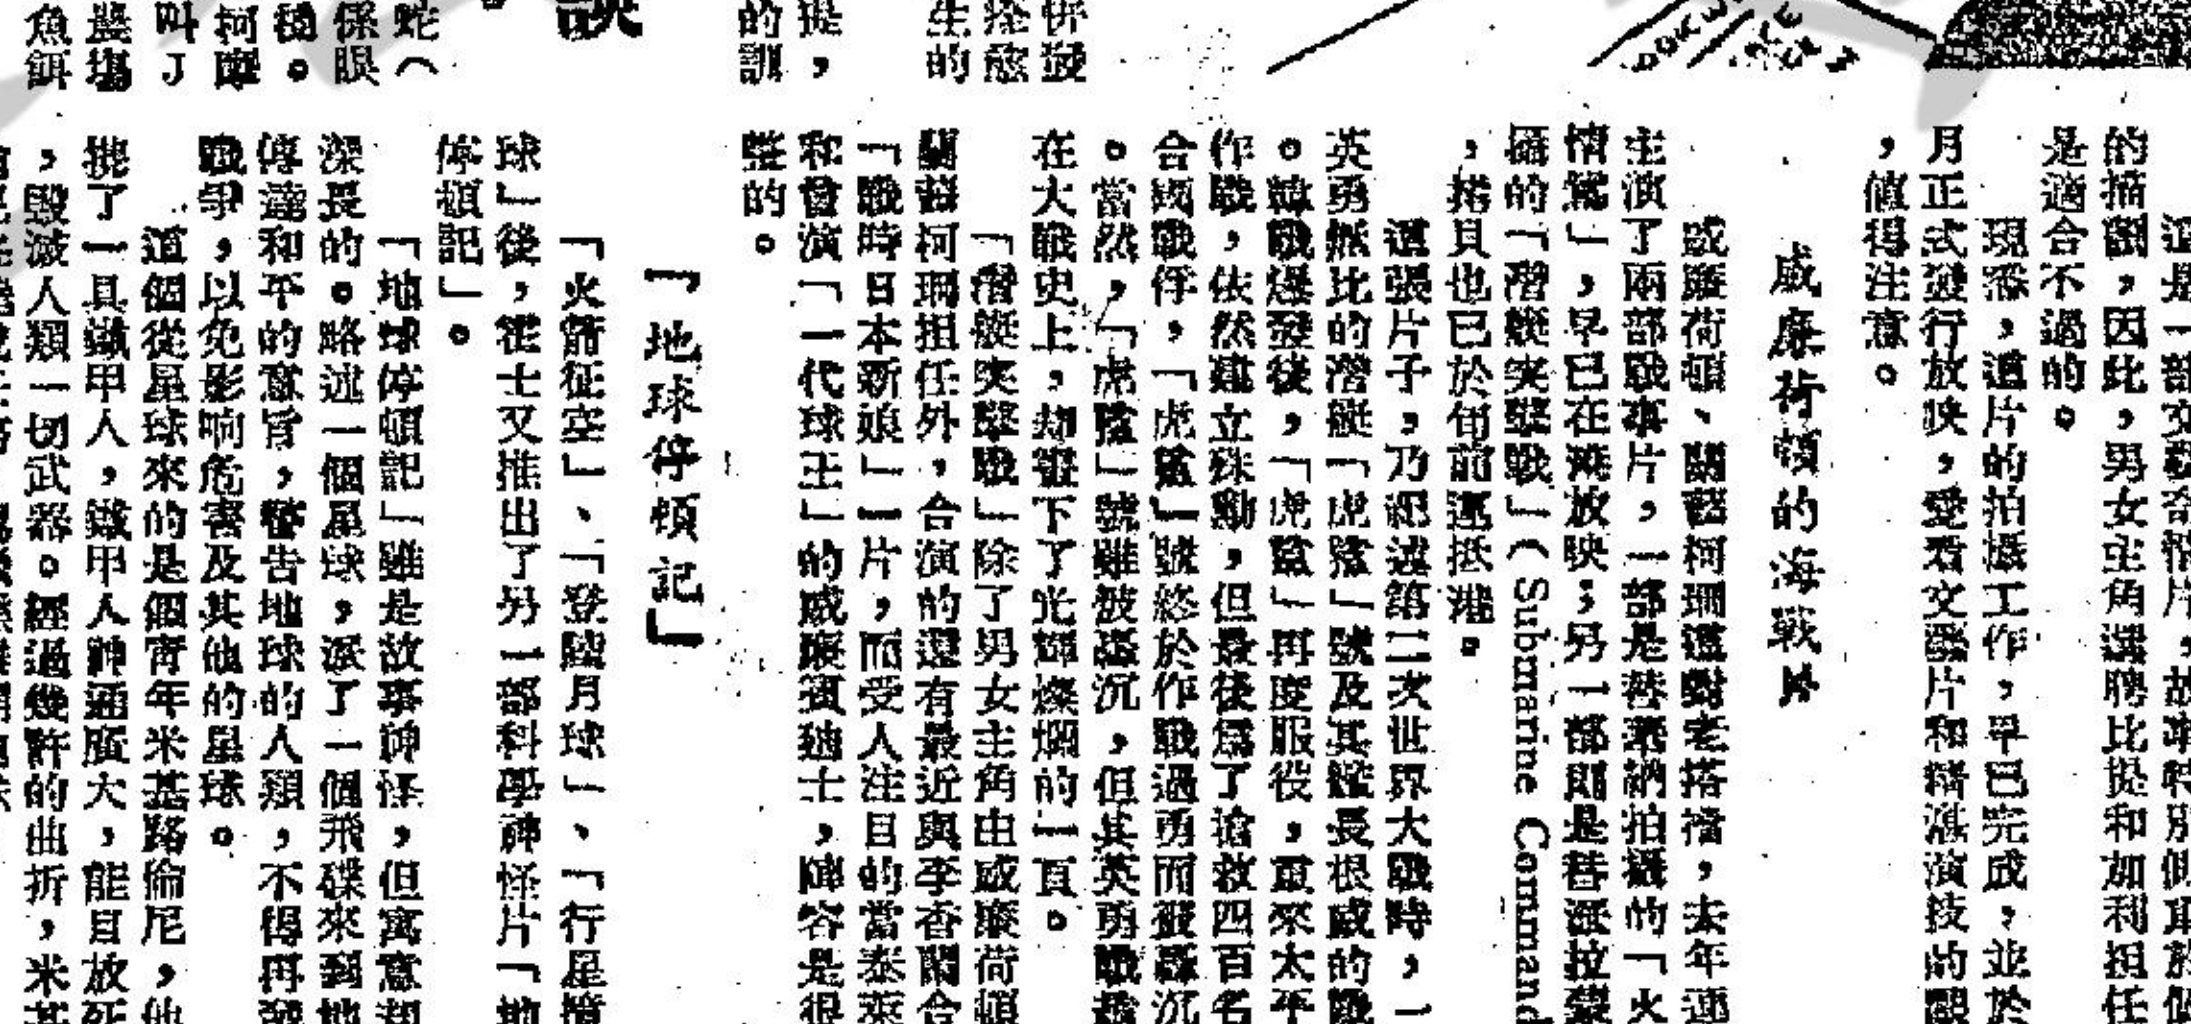 的描劃，因此，男女主角選聘比提和加利担任
是適合不過的。
現悉，這片的拍攝工作，早已完成，並於
月正式發行放映，愛看文藝片和精湛演技的觀
，值得注意。
威廉荷頓的海戰片
威廉荷頓、關茜柯珊這對老搭檔，去年連
主演了兩部戰事片，一部是替華納拍攝的「火
情駕」，早已在港放映；另一部則是替派拉蒙
攝的「潛艇突擊戰」（Submarine Command
，拷貝也已於旬前運抵港。
這張片子，乃紀述第二次世界大戰時，一
英勇無比的潛艇「虎鯊」號及其艦長根威的戰
。韓戰爆發後，「虎鯊」再度服役，重來太平
作戰，依然建立殊勳，但最後為了搶救四百名
合國戰俘，「虎鯊」號終於作戰過勇而被轟沉
。當然，「虎鯊」號雖被轟沉，但其英勇戰績
在大戰史上，却留下了光輝燦爛的一頁。
「潛艇突擊戰」除了男女主角由威廉荷頓
關茜柯珊担任外，合演的還有最近與李香蘭合
「戰時日本新娘」一片，而受人注目的當泰萊
和曾演「一代球王」的威廉賓廸士，陣容是很
整的。
「地球停頓記」
「火箭征空」、「登陸月球」、「行星撞
球」後，霍士又推出了另一部科學神怪片「地
停頓記」。
「地球停頓記」雖是故事神怪，但寓意却
深長的。略述一個星球，派了一個飛碟來到地
傳達和平的意旨，警告地球的人類，不得再發
戰爭，以免影响危害及其他的星球。
這個從星球來的是個青年米基路倫尼，他
携了一具鐵甲人，鐵甲人神通廣大，能目放死
，毀滅人類一切武器。經過幾許的曲折，米基
併發
痊愈
生的
提，
的訓
談
蛇（
係眼
穩。
柯
叫J
農場
魚餌